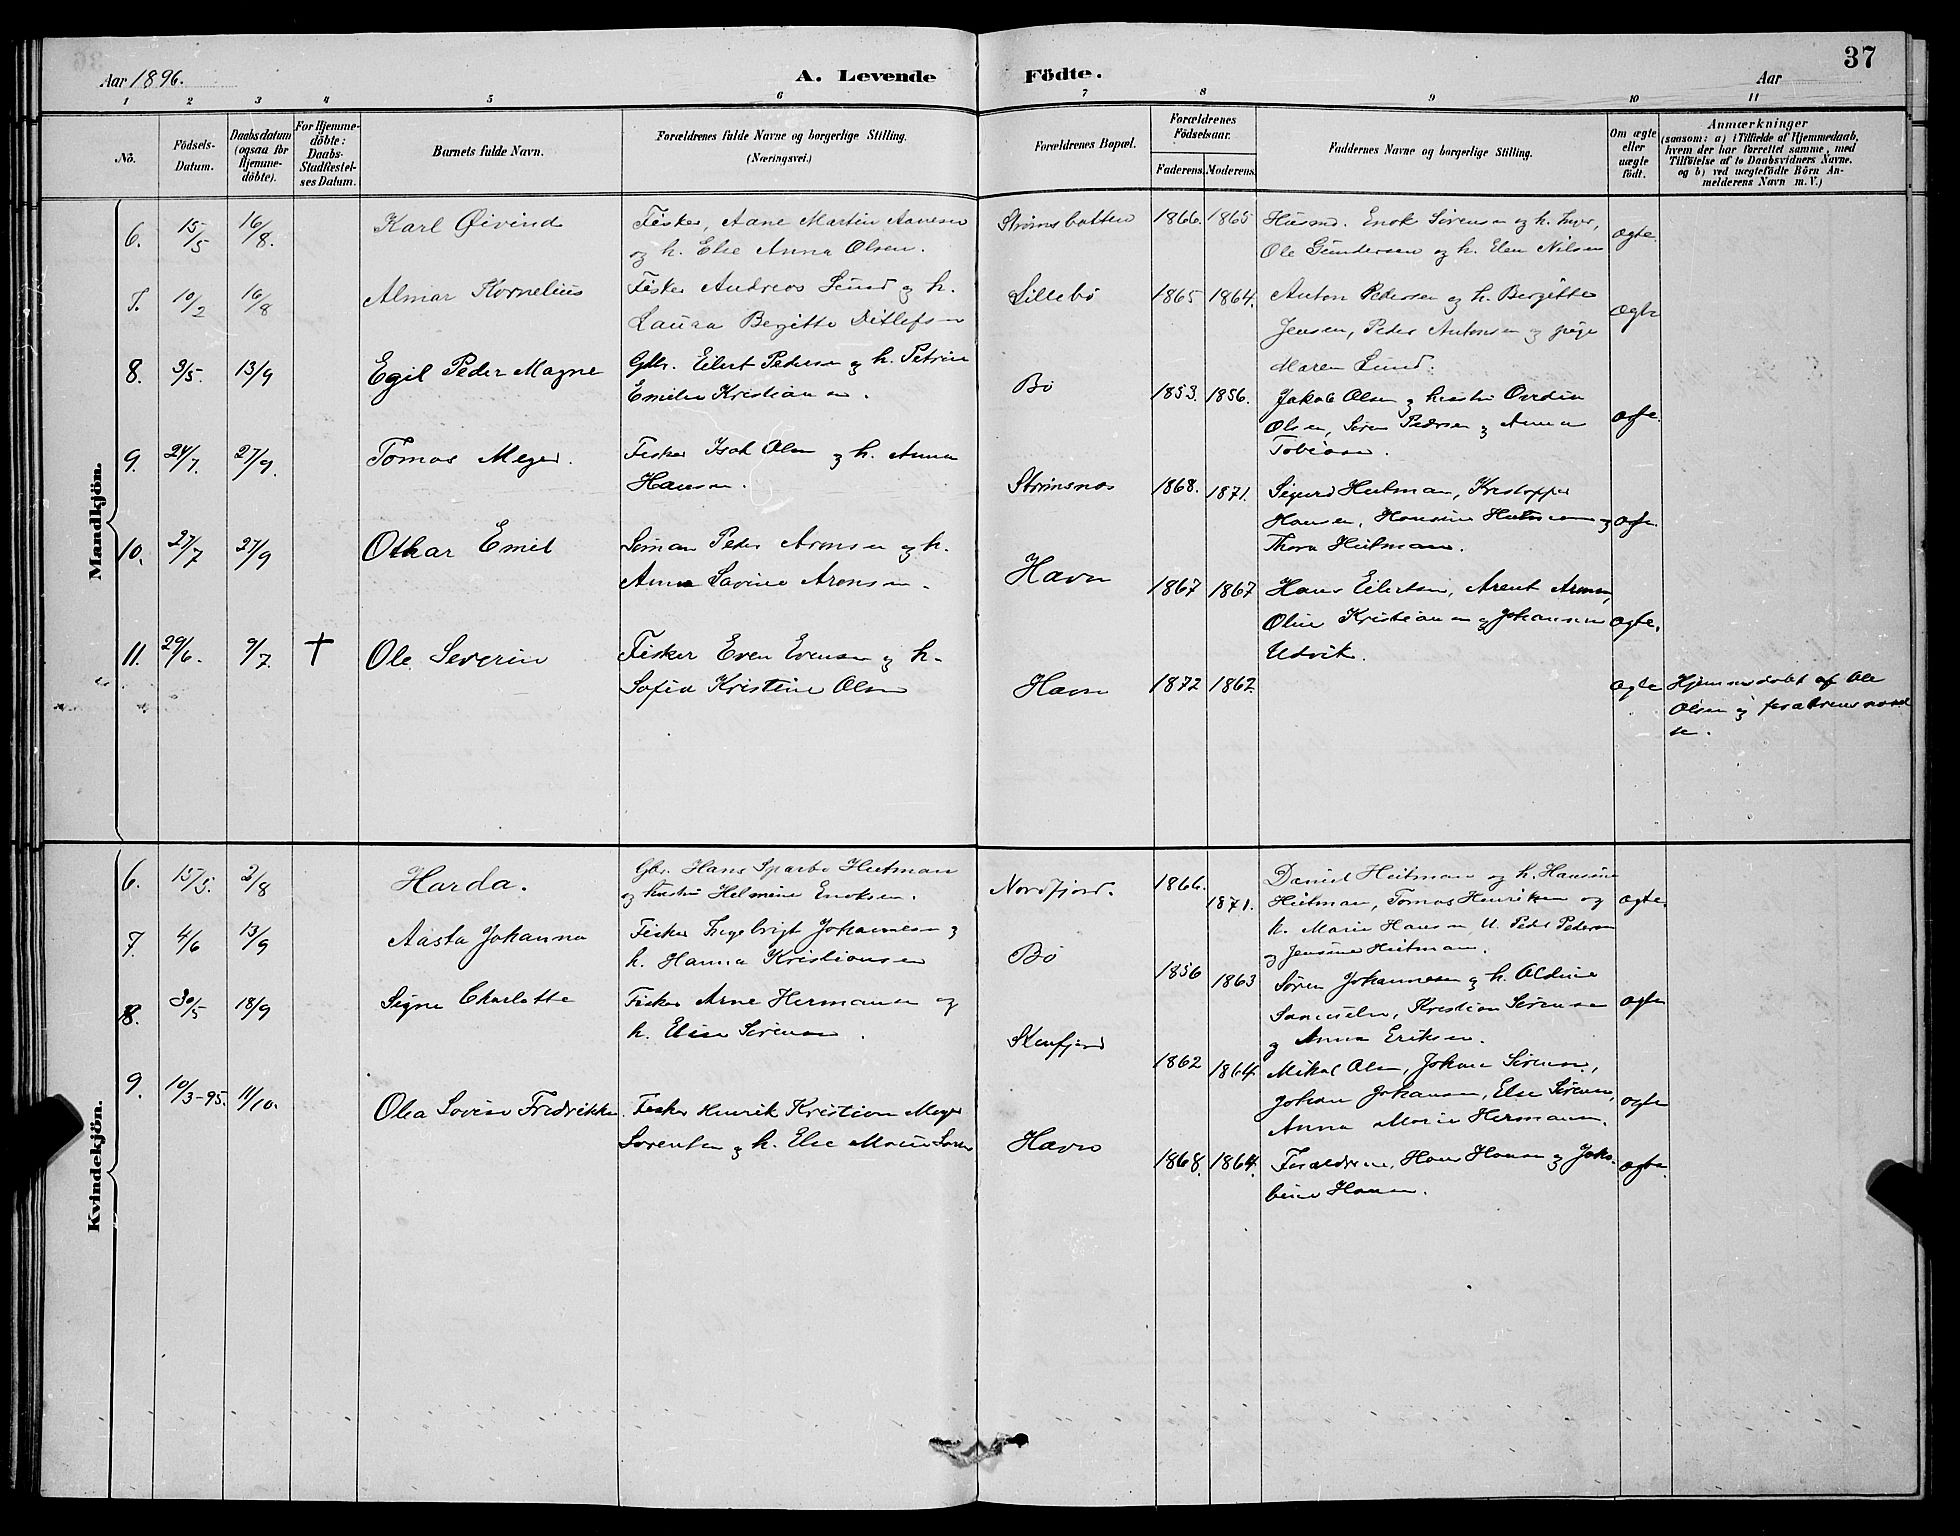 37
Aar 1896.
A. Levende Födte.
Aar
1 2 3 4 5 6 7 8 9 10 11
No.
Födsels-Datum.
Daabsdatum (ogsaa for Hjemme-döbte).
For Hjemme-döbte: Daabs-Stadfestel-ses Datum.
Barnets fulde Navn.
Forældrenes fulde Navne og borgerlige Stilling. (Næringsvei.)
Forældrenes Bopæl.
Forældrenes Födselsaar.
Faderens. Moderens.
Faddernes Navne og borgerlige Stilling.
Om ægte eller uægte födt.
Anmærkninger
(saasom: a) i Tilfælde af Hjemmedaab, hvem der har forrettet samme, med Tilföielse af to Daabsvidners Navne, og b) ved uægtefödte Börn An-melderens Navn m. V.)
Mandkjön.
6. 15/5 16/8. Karl Øivind
Fisker, Aane Martin Aanesen
og h. Else Anna Olsen.
Strømsbotten 1866. 1865
Husmd. Enok Sørensen og h. Inger,
Ole Gundersen og h. Elen Nilsen
ægte.
7. 10/2 16/8 Almar Kornelius
Fisker Andreas Lund og h.
Laura Bergitte Ditlefsen
Lillebø 1865 1864.
Anton Pedersen og h. Bergitte
Jensen, Peder Antonsen og pige
Maren Lund.
ægte
8. 3/5. 13/9 Egil Peder Magne
Gbr. Eilert Pedersen og h. Petrine
Emilie Kristiansen.
Bø 1853. 1856.
Jakob Olsen og hustru Ovedia
Olsen, Søren Pedersen og Anna
Tobiasen.
ægte.
9. 24/7. 27/9. Tomas Meyer.
Fisker Isak Olsen og h. Anna
Hansen.
Strømsnes 1868. 1871.
Sigurd Heitman, Kristoffer
Hansen, Hansine Heitman og
Thora Heitman.
ægte.
10. 27/7 27/9 Othar Emil
Simon Peder Aronsen og h.
Anna Lovine Aronsen.
Havn 1867 1867
Hans Eilertsen, Arent Aronsen,
Oline Kristiansen og Johansen
Udvik.
ægte.
11. 29/6. 9/7. † Ole Severin
Fisker Even Evensen og h.
Sofia Kristine Olsen
Havn 1872 1862.
ægte
Hjemmedøbt af Ole
Olsen og forældrene
Kvindekjön.
6. 15/5. 2/8 Harda.
Gbr. Hans Sparbo Heitman
og hustru Helmine Enoksen.
Nordfjord. 1866. 1871.
Daniel Heitman og h. Hansine
Heitman, Tomas Henriksen og
h. Marie Hansen, U. Peder Pedersen
og Jensine Heitman.
ægte.
7. 4/6 13/9 Aasta Johanna
Fisker Ingebrigt Johannesen og
h. Hanna Kristiansen
Bø 1856 1863
Søren Johannesen og h. Aldine
Samuelsen, Kristian Sørensen
og Anna Eriksen.
ægte
8. 30/5 18/9 Signe Charlotte
Fisker Arne Hermansen og
h. Elise Sørensen.
Skufjord 1862 1864.
Mikal Olsen, Johan Sørensen,
Johan Johansen, Else Sørensen,
Anna Marie Hermansen.
ægte
9. 10/3-95. 11/10. Olea Lovise Fredrikke
Fisker Henrik Kristian Meyer
Lorentsen og h. Else Marie
Havn 1868. 1864.
Forældrene, Hans Hansen og Jako-
bine Hansen.
ægte.